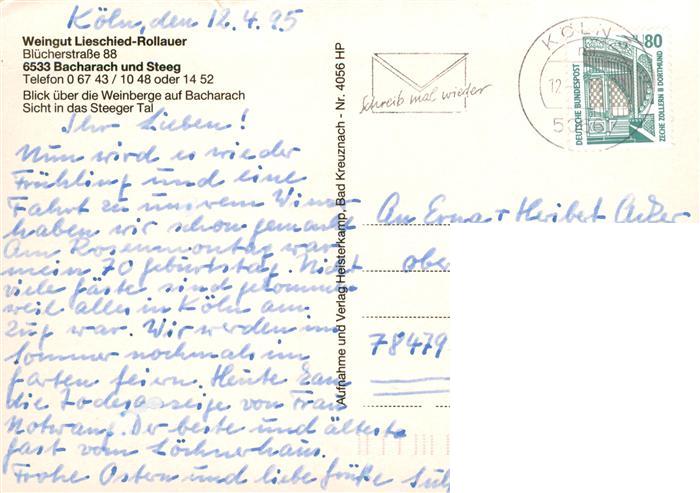 Köln, den 12.4.95
Weingut Lieschied-Rollauer
Blücherstraße 88
6533 Bacharach und Steeg
Telefon 0 67 43 / 10 48 oder 14 52
Blick über die Weinberge auf Bacharach
Sicht in das Steeger Tal
Ihr Lieben!
Nun wird es wieder
Frühling und eine
Fahrt zu unsrem Winzer
haben wir schon gemacht
Am Rosenmontag war
mein 70 Geburtstag. Nicht
viele Gäste sind gekommen
weil alles in Köln am
Zug war. Wir werden im
Sommer nochmals im
Garten feiern. Heute kam
die Todesanzeige von Frau
Notwang. Der beste und älteste
Gast vom Löchnerhaus.
Frohe Ostern und liebe Grüße
Aufnahme und Verlag Heisterkamp, Bad Kreuznach - Nr. 4056 HP
Schreib mal wieder
KÖLN
12
DEUTSCHE BUNDESPOST
80
ZECHE ZOLLERN II DORTMUND
An Erna + Heribert
78479